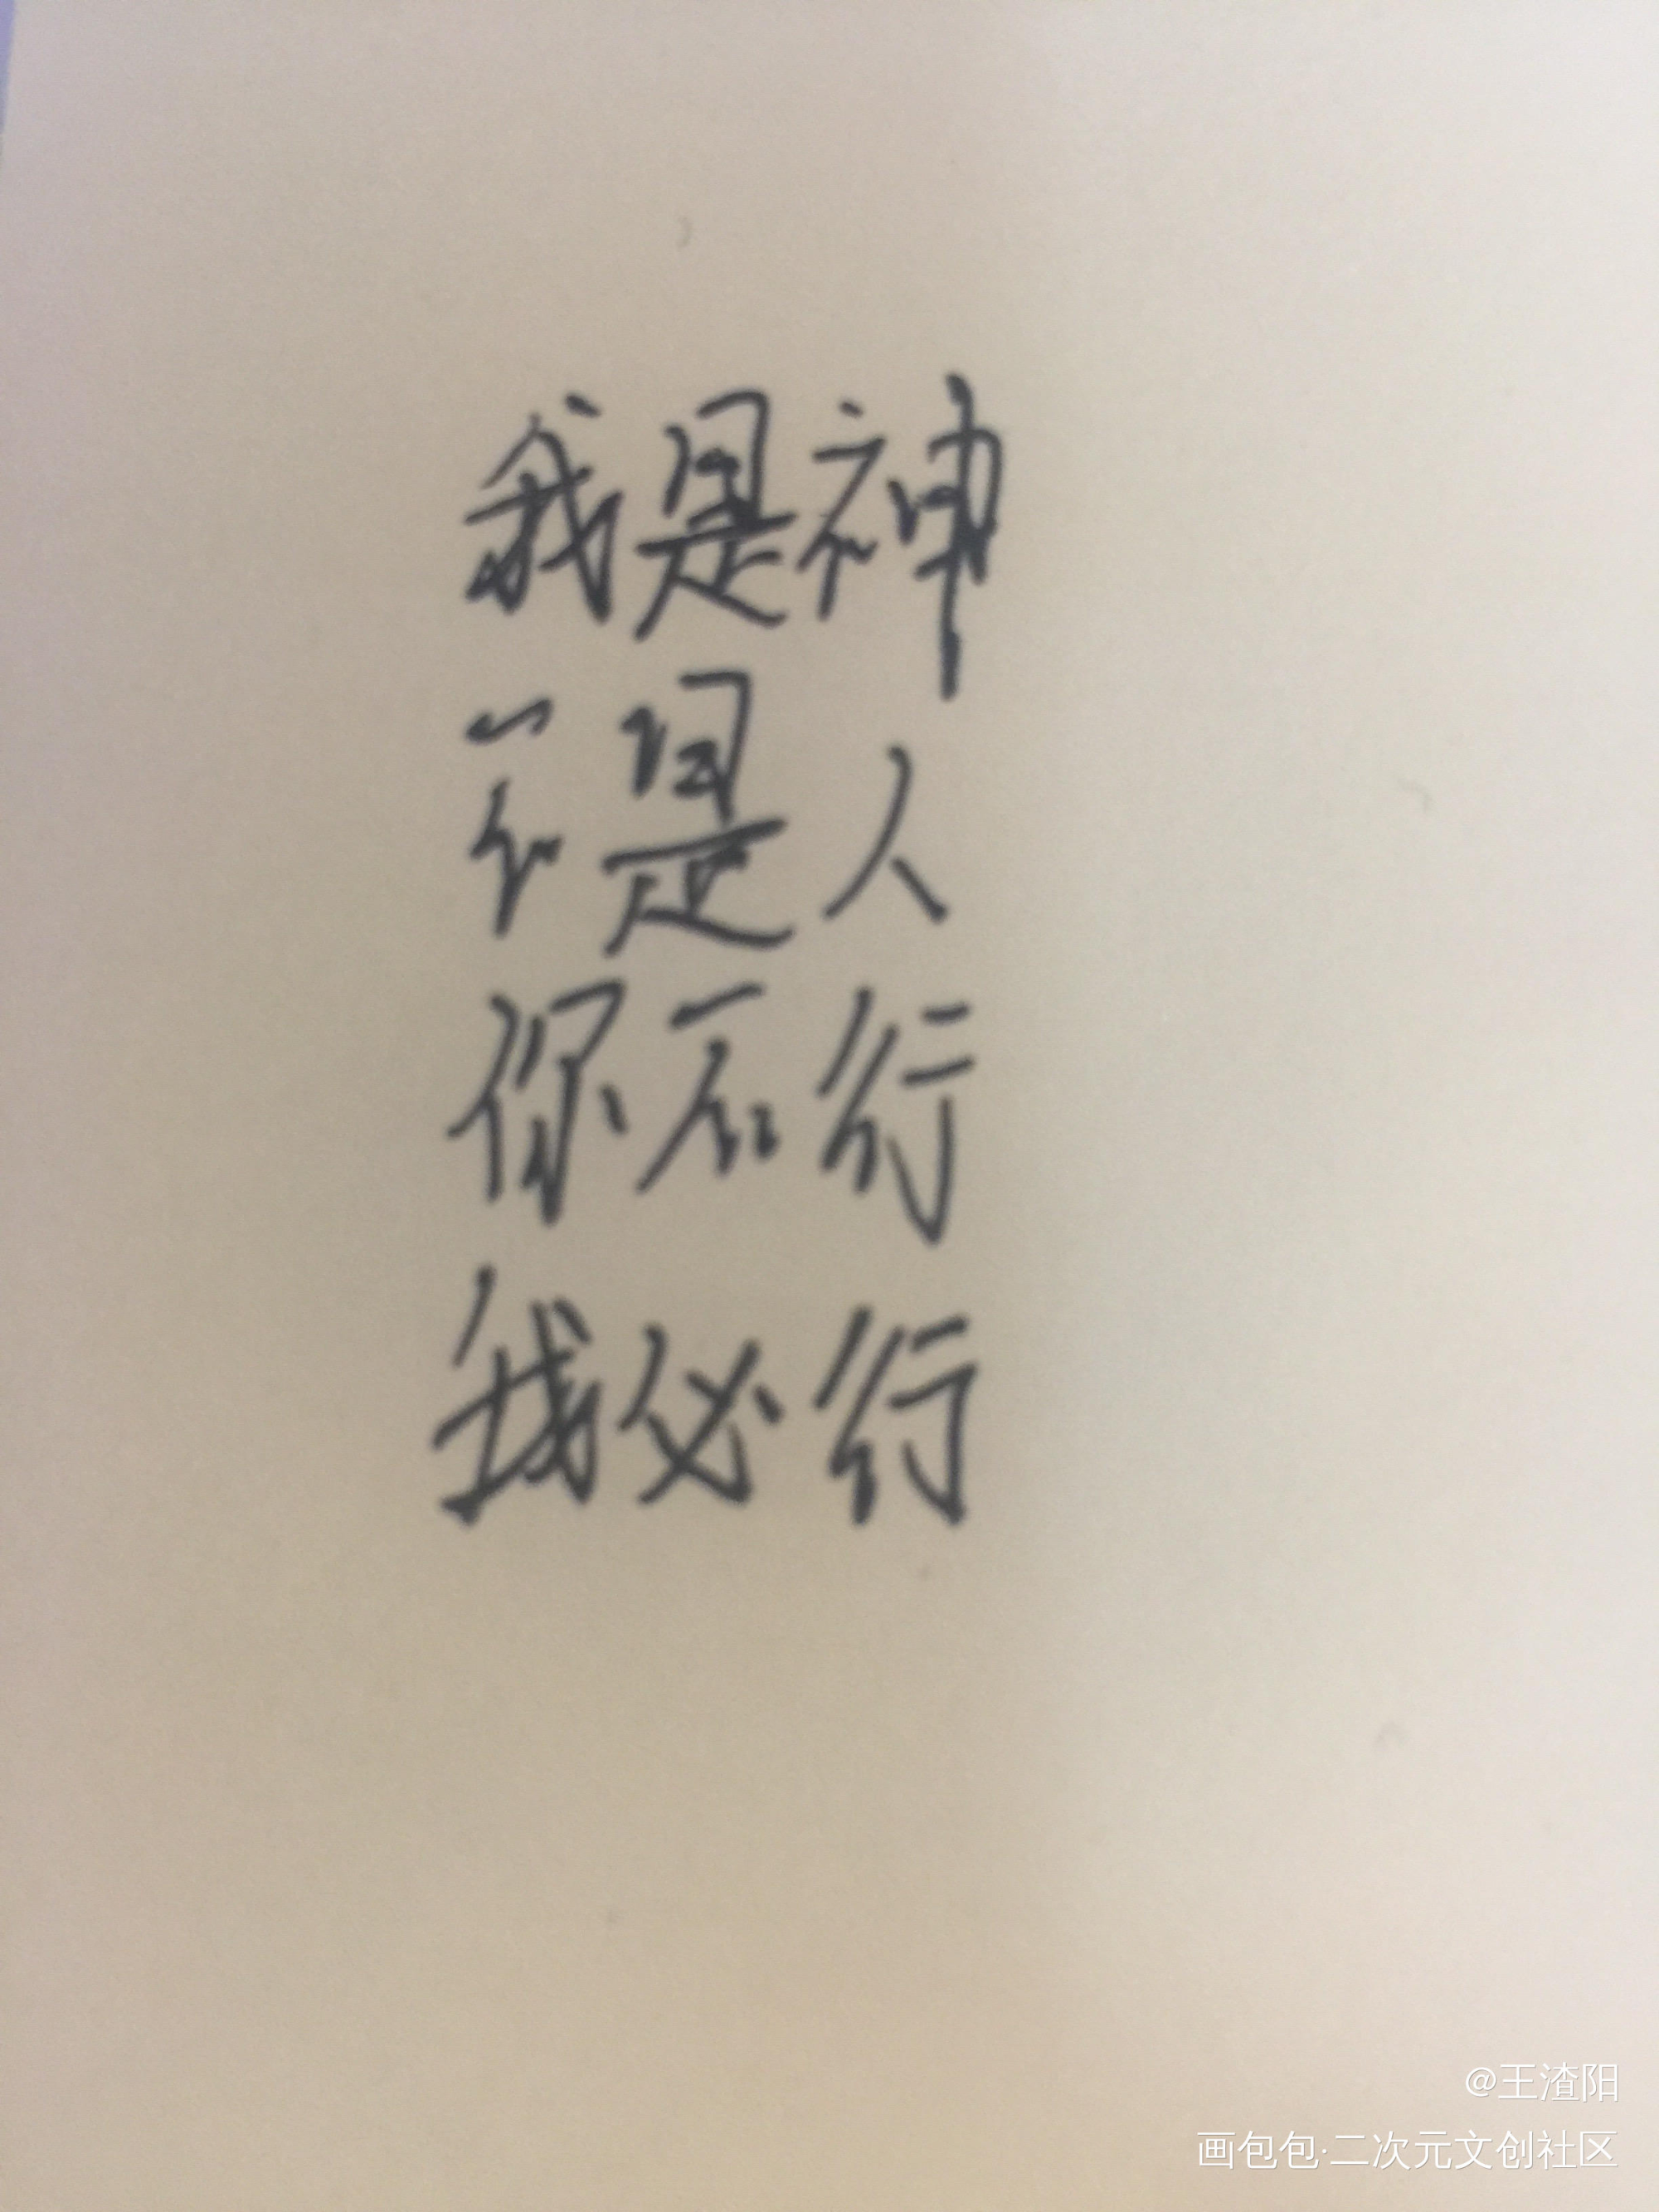 我是神
不是人
你不行
我必行
@王渣阳
画包包·二次元文创社区